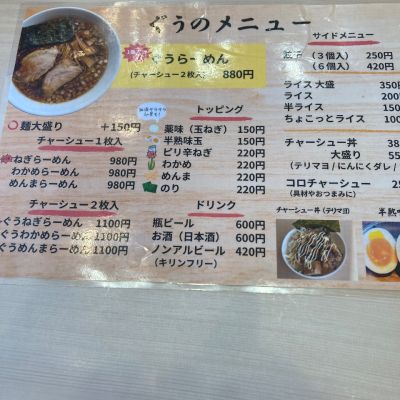 ぐうのメニュー
ぐうらーめん
(チャーシュー2枚入) 880円
麺大盛り +150円
チャーシュー1枚入
ねぎらーめん 980円
わかめらーめん 980円
めんまらーめん 980円
チャーシュー2枚入
ぐうねぎらーめん 1100円
ぐうわかめらーめん 1100円
ぐうめんまらーめん 1100円
トッピング
薬味(玉ねぎ) 150円
半熟味玉 150円
ピリ辛ねぎ 220円
わかめ 220円
めんま 220円
のり 220円
ドリンク
瓶ビール 600円
お酒(日本酒) 600円
ノンアルビール 420円
(キリンフリー)
サイドメニュー
餃子 (3個入) 250円
(6個入) 420円
ライス 大盛 350
ライス 200
半ライス 150
ちょこっとライス
チャーシュー丼
大盛り 55
(テリマヨ/にんにくダレ/
コロチャーシュー
(具材やおつまみに)
チャーシュー丼(テリマヨ)
半熟